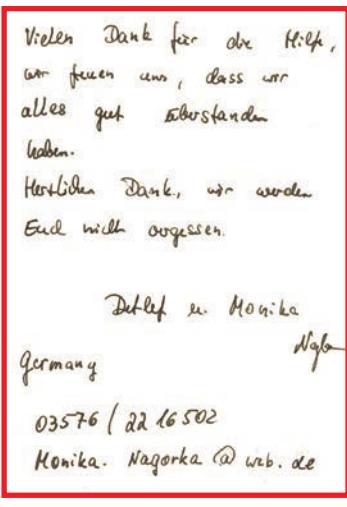 Vielen Dank für die Hilfe,
wir freuen uns, dass wir
alles gut überstanden
haben.
Herzlichen Dank, wir werden
Euch nicht vergessen.
Detlef u. Monika
Germany
03576 / 22 16 502
Monika. Nagorka @ web. de